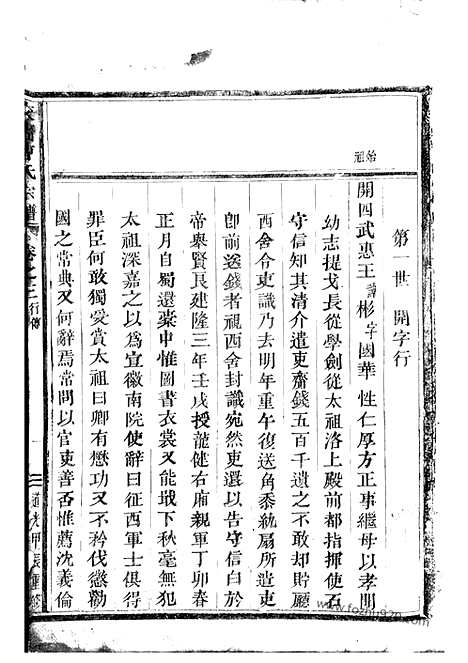 第一世 開字行
始祖
開四武惠王諱彬字國華 性仁厚方正事繼母以孝聞
幼志提戈長從學劍從太祖洛上殿前都指揮使石
守信知其清介遣吏齎錢五百千遺之不敢却貯廳
西舍令吏識乃去明年重午復送角黍紈扇所遣吏
卽前送錢者視西舍封識宛然吏還以告守信白於
帝舉賢良建隆三年壬戌授龍健右廂親軍丁卯春
正月自蜀還橐中惟圖書衣裳又能戢下秋毫無犯
太祖深嘉之以爲宣徽南院使辭曰征西軍士俱得
罪臣何敢獨受賞太祖曰卿有懋功又不矜伐懲勸
國之常典又何辭焉常問以官吏善否惟薦沈義倫
曹氏宗譜
卷之二行傳
一
道光甲辰重修
www.fozhu920.com